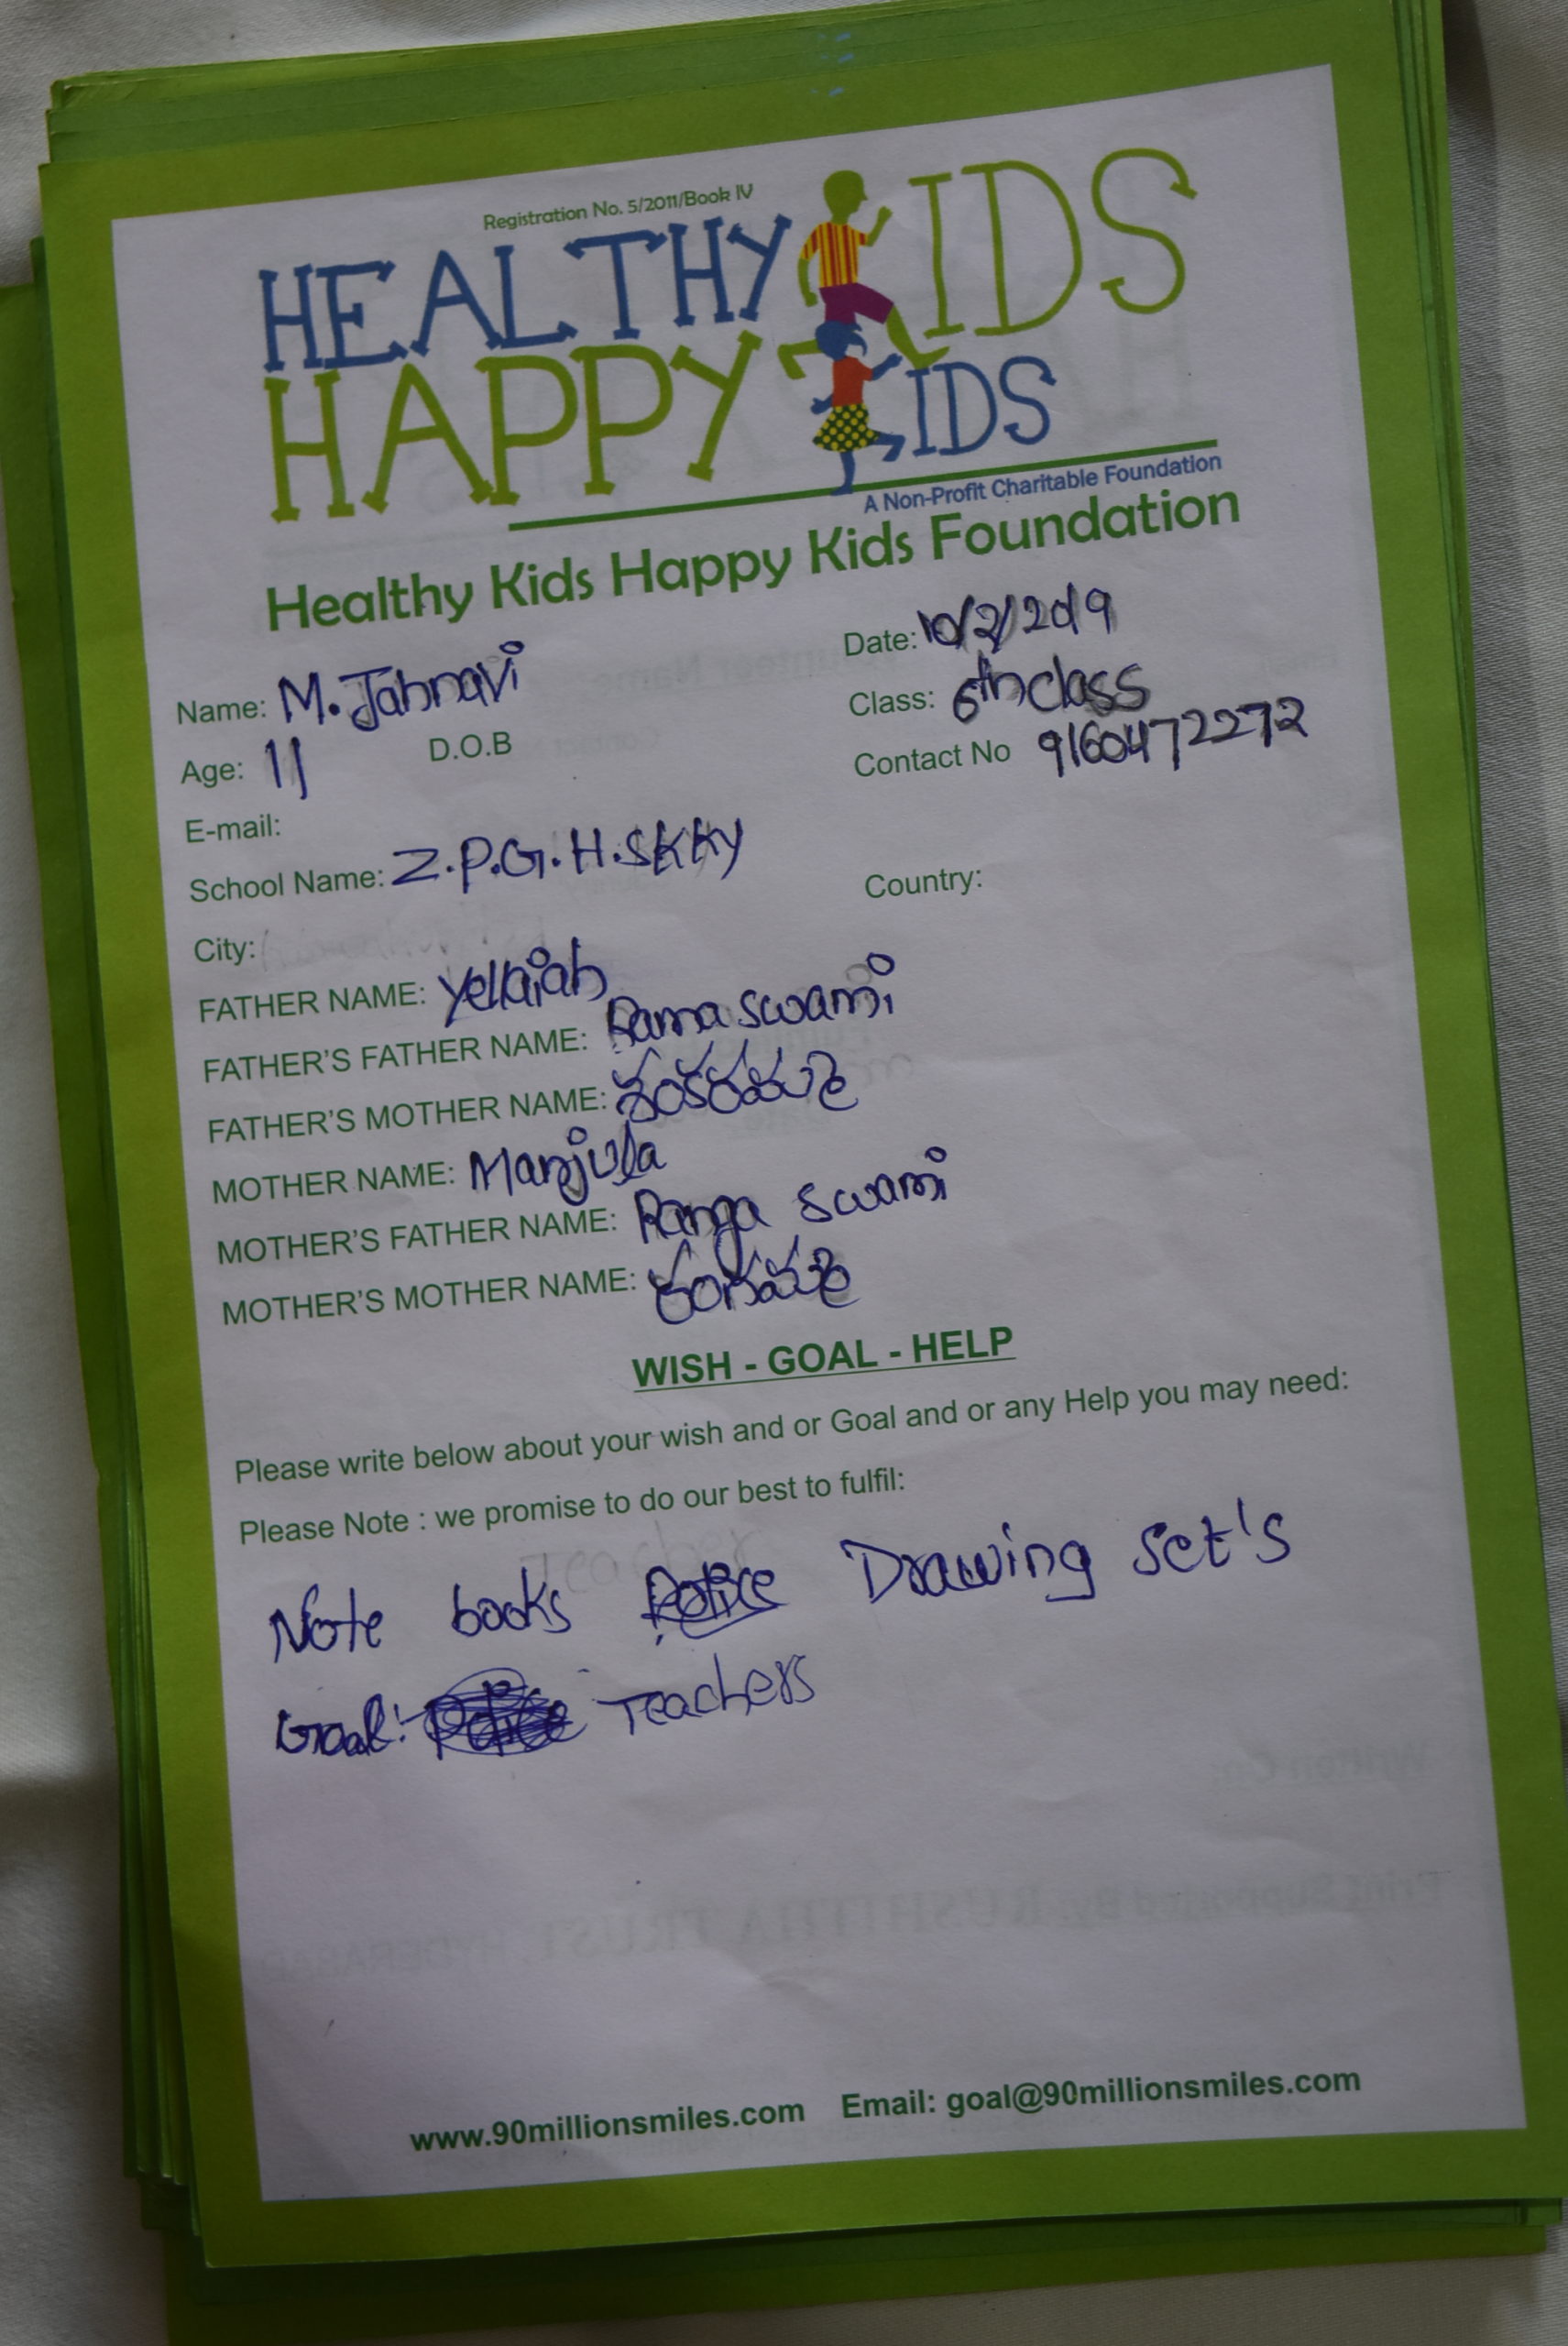 Registration No. 5/2011/Book IV
HEALTHY KIDS
HAPPY KIDS
A Non-Profit Charitable Foundation
Healthy Kids Happy Kids Foundation
Name: M. Jahnavi Date: 10/2/2019
Age: 11 D.O.B Class: 6th class
Contact No 9160472272
E-mail:
School Name: Z.P.G.H.SKKY
City: Country:
FATHER NAME: Yellaiah
FATHER'S FATHER NAME: Rama swami
FATHER'S MOTHER NAME:
MOTHER NAME: Manjula
MOTHER'S FATHER NAME: Ranga swami
MOTHER'S MOTHER NAME:
WISH - GOAL - HELP
Please write below about your wish and or Goal and or any Help you may need:
Please Note : we promise to do our best to fulfil:
Note books Police Drawing set's
Goal: Police Teachers
www.90millionsmiles.com Email: goal@90millionsmiles.com